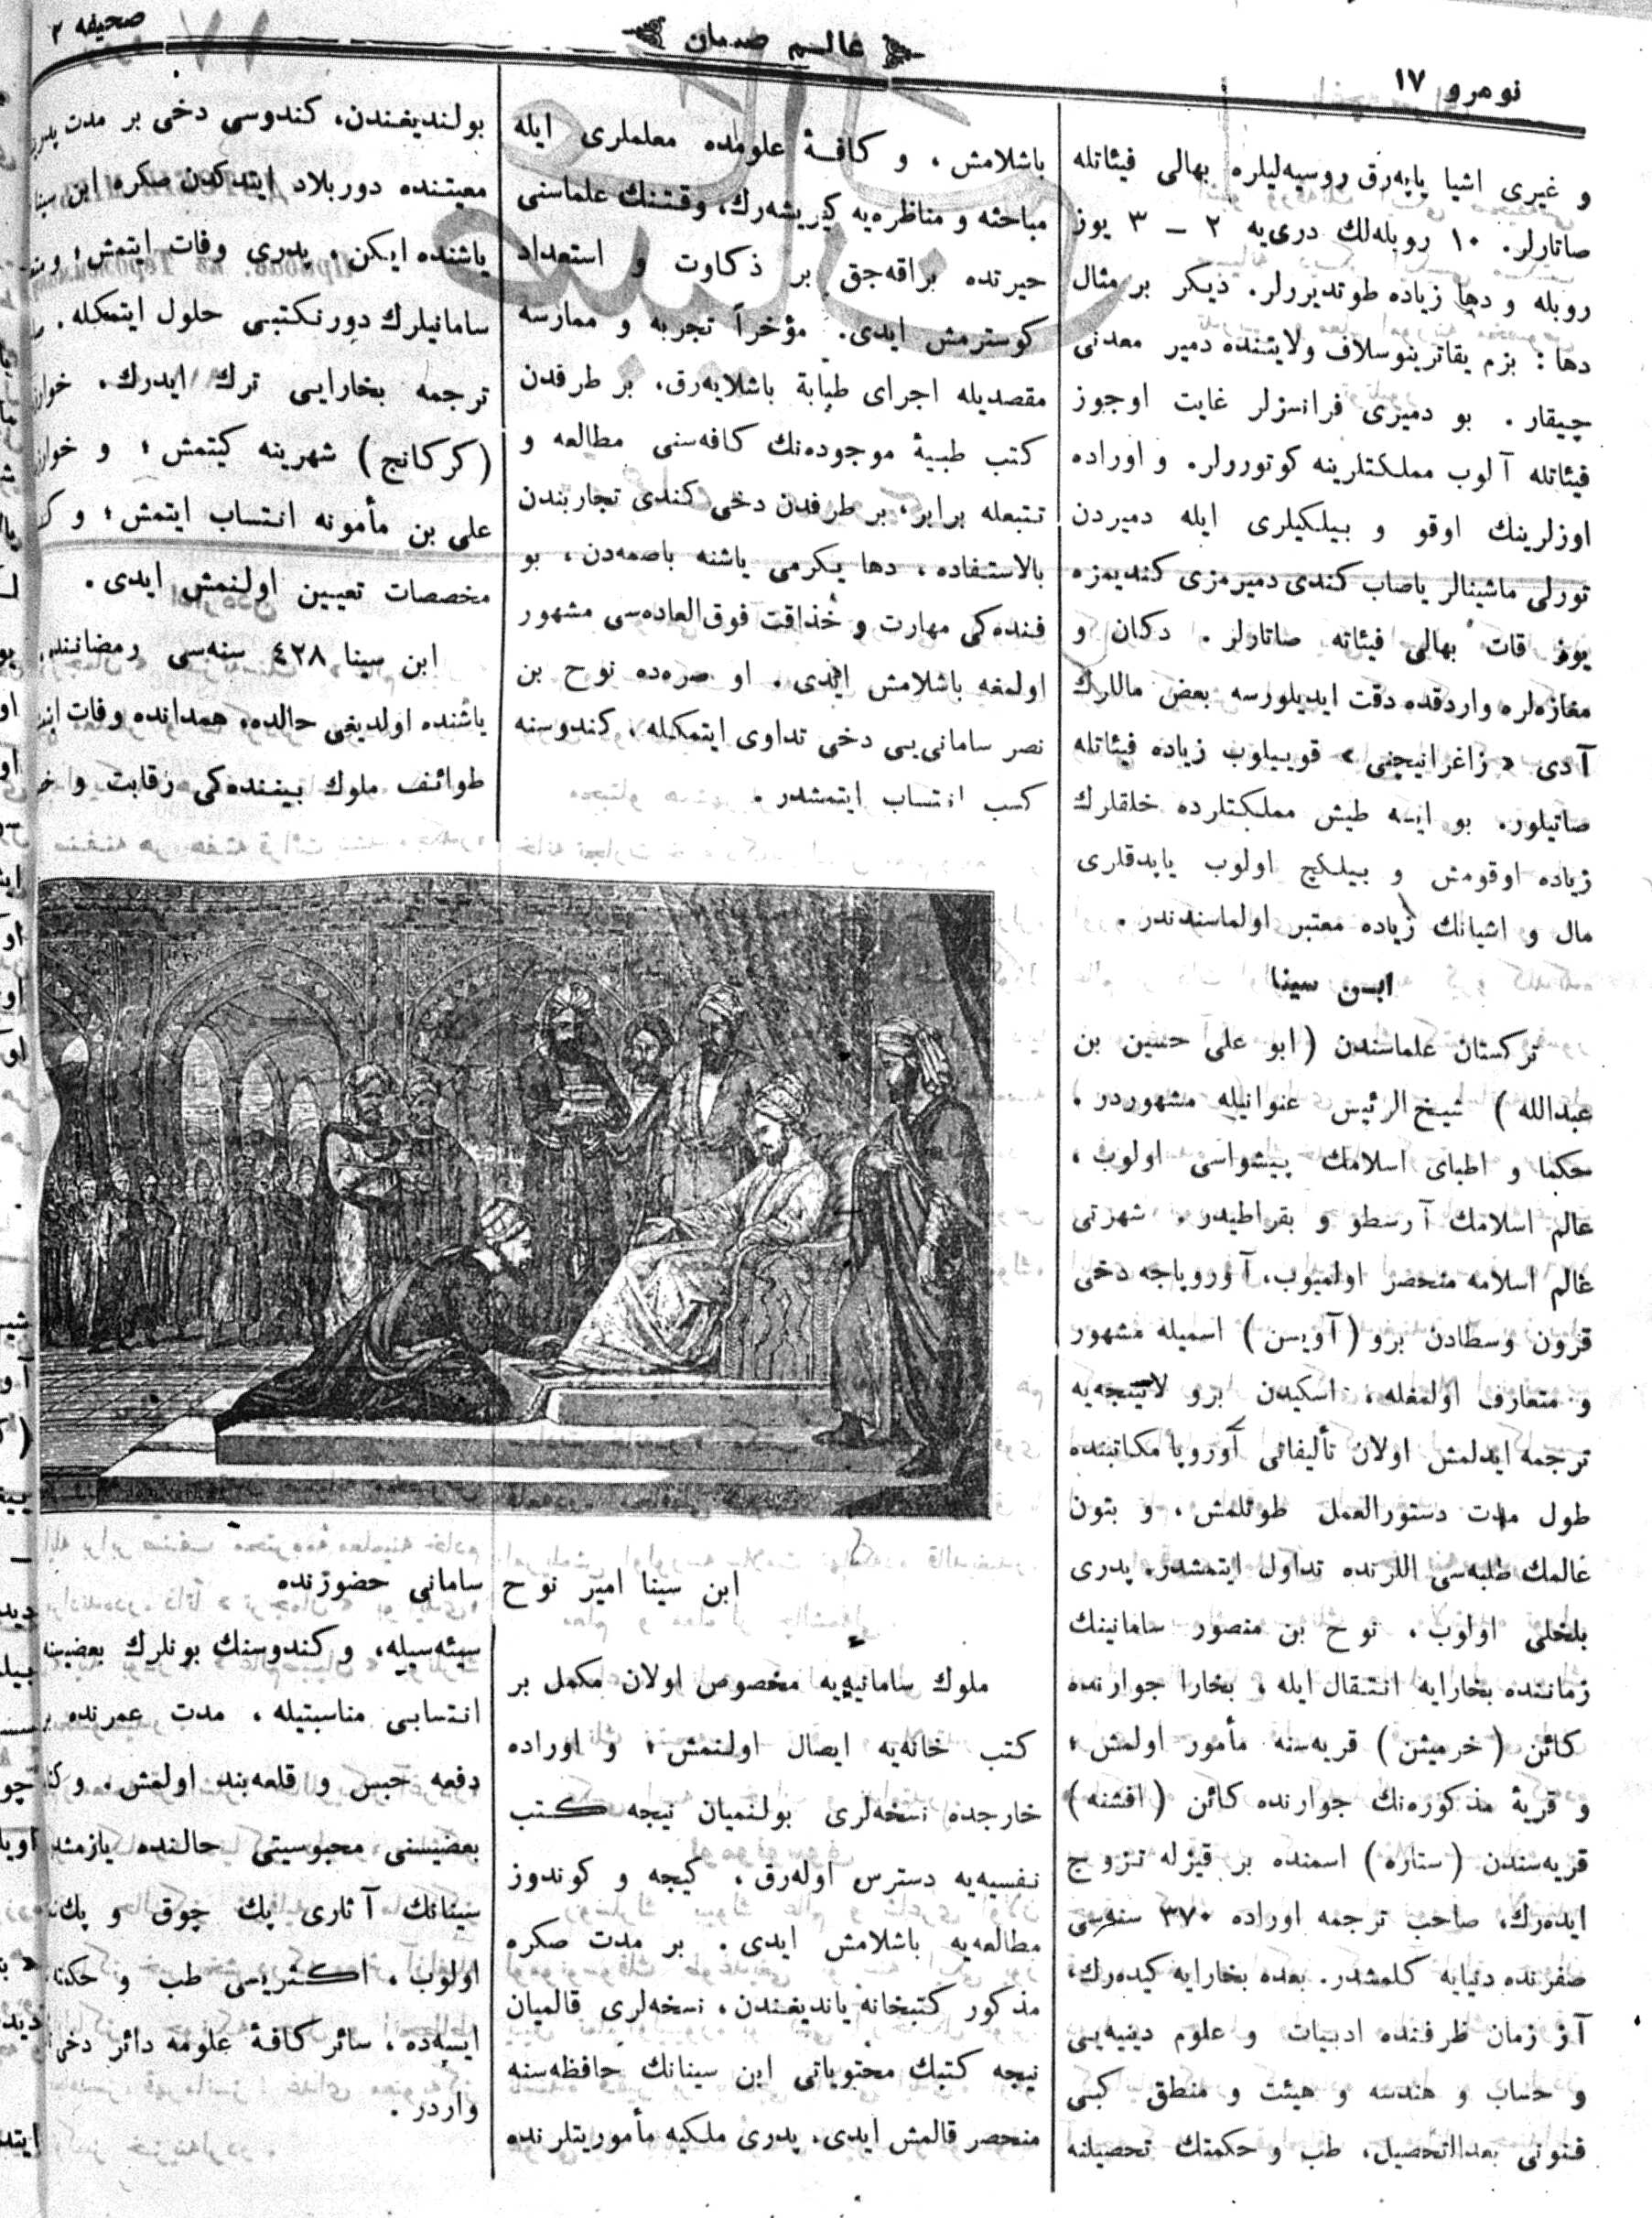 نومرو ١٧
عالم صبيان
صحيفه ٢
و غيرى اشيا ياپه‌رق روسيه‌ليلره بهالى فيئاتله
صاتارلر. ١٠ روبله‌لك درى‌يه ٢ – ٣ يوز
روبله و دها زياده طوتديررلر. ذيكر بر مثال
دها : بزم يقاترينوسلاف ولايتنده دمير معدنى
چيقار . بو دميرى فرانسزلر غايت اوجوز
فيئاتله آلوب مملكتلرينه كوتورورلر. و اوراده
اوزلرينك اوقو و بيلكيلرى ايله دميردن
تورلى ماشينالر ياصاب كندى دميرمزى كنديمزه
يوز قات بهالى فيئاته صاتارلر . دكان و
مغازه‌لره واردقده دقت ايديلورسه بعض ماللرك
آدى « زاغرانيچنى » قوييلوب زياده فيئاتله
صاتيلور. بو ايسه طيش مملكتلرده خلقلرك
زياده اوقومش و بيلكچ اولوب ياپدقلرى
مال و اشيانك زياده معتبر اولماسندندر .
ابن سينا
تركستان علماسندن (ابو على حسين بن
عبدالله ) شيخ الرئيس عنوانيله مشهوردر .
حكما و اطباى اسلامك پيشواسى اولوب ،
عالم اسلامك آرسطو و بقراطيدر . شهرتى
عالم اسلامه منحصر اولميوب، آوروپاجه دخى
قرون وسطادن برو (آويسن) اسميله مشهور
و متعارف اولمغله ، اسكيدن برو لاتينجه‌يه
ترجمه ايدلمش اولان تأليفاتى آوروپا مكاتبنده
طول مدت دستورالعمل طوتلمش ، و بتون
عالمك طلبه‌سى اللرنده تداول ايتمشدر. پدرى
بلخلى اولوب ، نوح بن منصور سامانينك
زماننده بخارايه انتقال ايله ، بخارا جوارنده
كائن (خرميثن) قريه‌سنه مأمور اولمش ؛
و قريهٔ مذكوره‌نك جوارنده كائن (افشنه)
قريه‌سندن (ستاره) اسمنده بر قيزله تزوج
ايده‌رك، صاحب ترجمه اوراده ٣٧٠ سنه‌سى
صفرنده دنيايه كلمشدر. بعده بخارايه كيده‌رك،
آز زمان ظرفنده ادبيات و علوم دينيه‌يى
و حساب و هندسه و هيئت و منطق كبى
فنونى بعدالتحصيل، طب و حكمتك تحصيلنه
باشلامش ، و كافهٔ علومده معلملرى ايله
مباحثه و مناظره‌يه كيريشه‌رك، وقتنك علماسنى
حيرتده براقه‌جق بر ذكاوت و استعداد
كوسترمش ايدى. مؤخراً تجربه و ممارسه
مقصديله اجراى طبابة باشلايه‌رق، بر طرفدن
كتب طبيهٔ موجوده‌نك كافه‌سنى مطالعه و
تتبعله برابر ، بر طرفدن دخى كندى تجاربندن
بالاستفاده ، دها يكرمى ياشنه باصمه‌دن ، بو
فنده‌كى مهارت و حذاقت فوق العاده‌سى مشهور
اولمغه باشلامش ايدى. او صره‌ده نوح بن
نصر سامانى‌يى دخى تداوى ايتمكله ، كندوسنه
كسب انتساب ايتمشدر .
ابن سينا امير نوح سامانى حضورنده
ملوك سامانيه‌يه مخصوص اولان مكمل بر
كتب خانه‌يه ايصال اولنمش ؛ و اوراده
خارجده نسخه‌لرى بولنميان نيجه كتب
نفيسه‌يه دسترس اوله‌رق ، كيجه و كوندوز
مطالعه‌يه باشلامش ايدى . بر مدت صكره
مذكور كتبخانه ياندیغندن ، نسخه‌لرى قالميان
نيجه كتبك محتوياتى ابن سينانك حافظه‌سنه
منحصر قالمش ايدى. پدرى ملكيه مأموريتلرنده
بولنديغندن، كندوسى دخى بر مدت
معيتنده دور بلاد ايتدكدن صكره ابن سينا
ياشنده ايكن ، پدرى وفات ايتمش ؛
سامانيلرك دور نكبتى حلول ايتمكله.
ترجمه بخارايى ترك ايدرك،
(كركانج) شهرينه كيتمش ؛ و
على بن مأمونه انتساب ايتمش ؛ و
مخصصات تعيين اولنمش ايدى .
ابن سينا ٤٢٨ سنه‌سى رمضاننده
ياشنده اولديغى حالده، همدانده وفات
طوائف ملوك بيننده‌كى رقابت و
سيئه‌سيله، و كندوسنك بونلرك بعضيسنه
انتسابى مناسبتيله ، مدت عمرنده
دفعه حبس و قلعه‌بند اولمش .
بعضيسنى محبوسيتى حالنده يازمشدر
سينانك آثارى پك چوق و پك
اولوب ، اكثريسى طب و
ايسه‌ده ، سائر كافهٔ علومه دائر دخى
واردر .